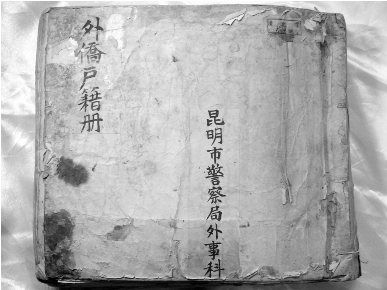 外僑戶籍册
昆明市警察局外事科